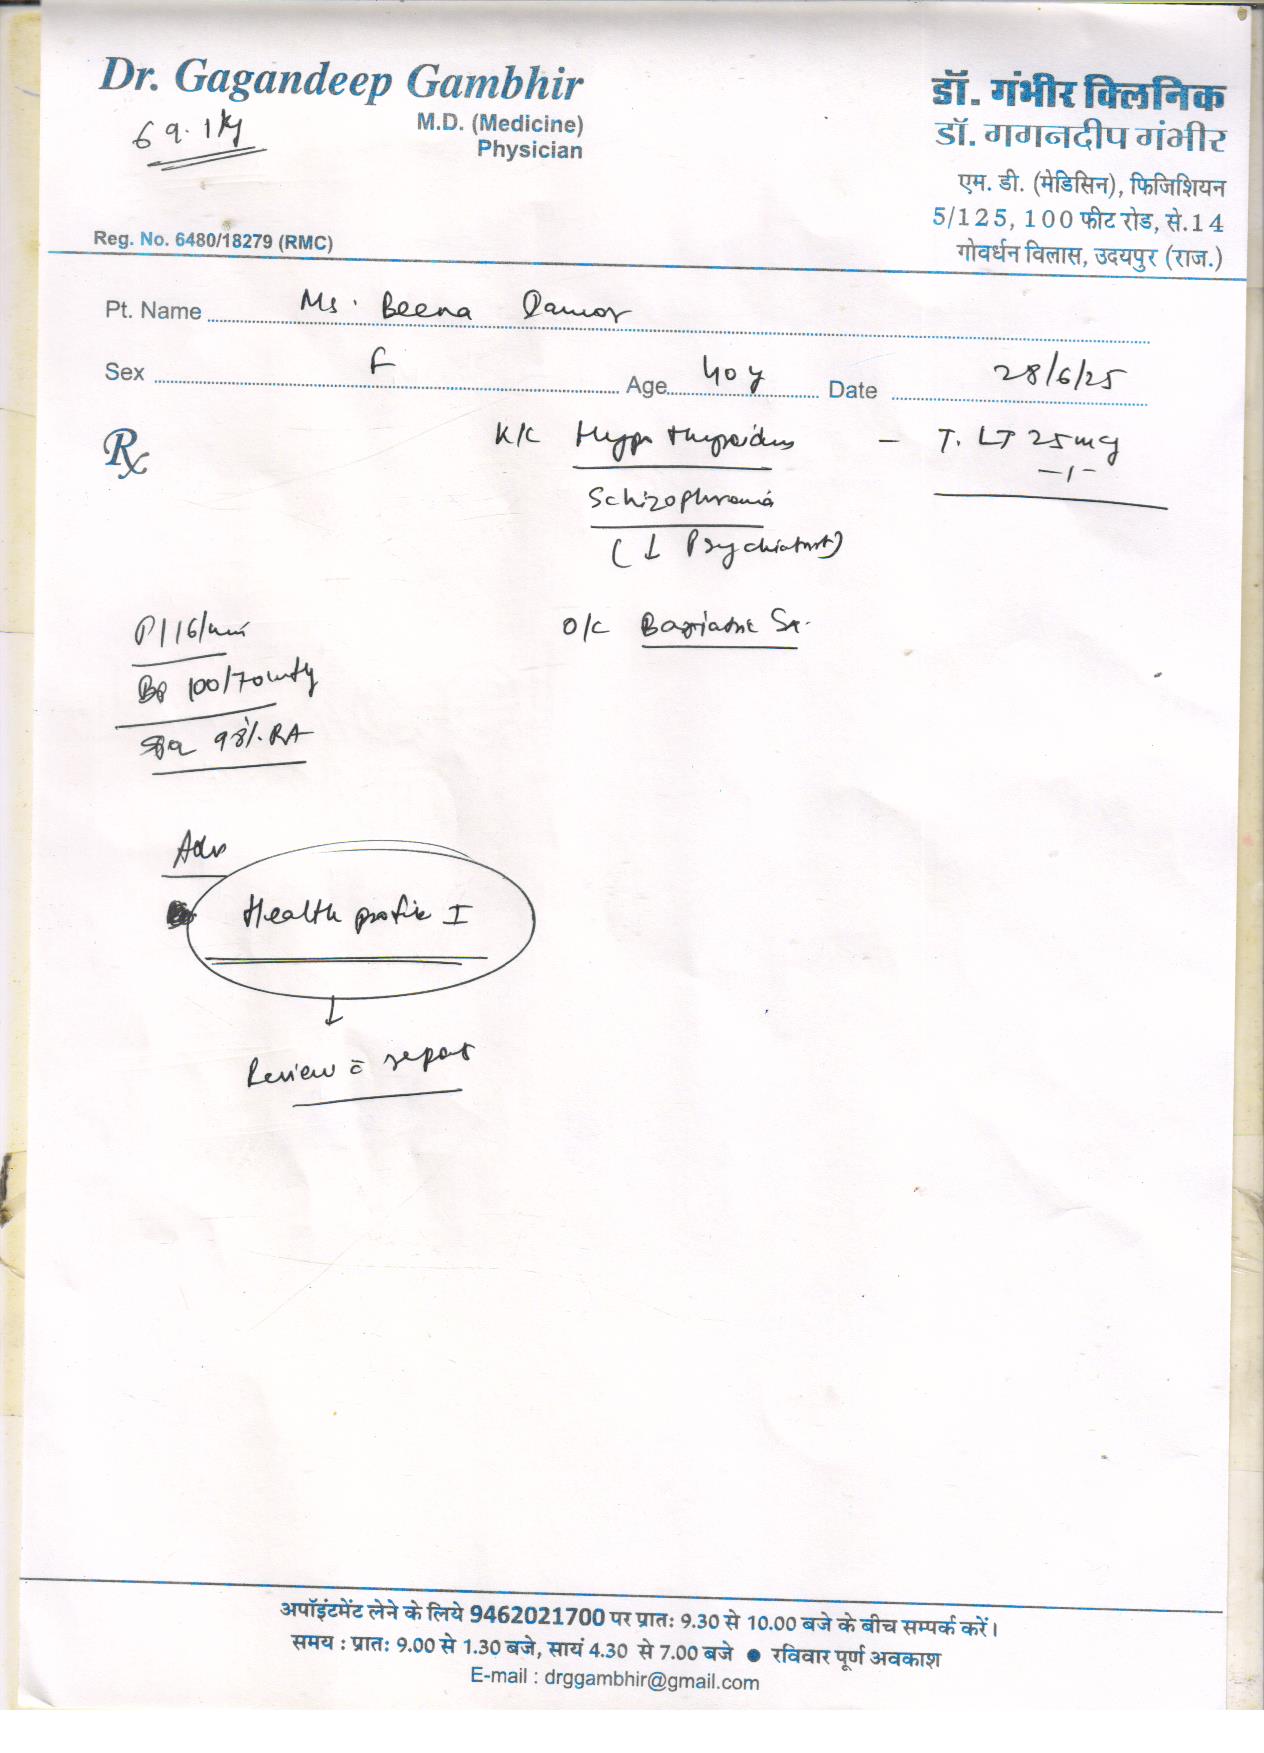 Dr. Gagandeep Gambhir
69.1kg
M.D. (Medicine)
Physician
Reg. No. 6480/18279 (RMC)
डॉ. गंभीर क्लिनिक
डॉ. गगनदीप गंभीर
एम. डी. (मेडिसिन), फिजिशियन
5/125, 100 फीट रोड, से.14
गोवर्धन विलास, उदयपुर (राज.)
Pt. Name Ms. Beena Damor
Sex F Age 40y Date 28/6/25
Rx K/C Hypothyroidism – T. LT 25mg
–1–
Schizophrenia
(↓ Psychiatrist)
P 116/min
O/C Bariatric Sx.
BP 100/70mmHg
98% RA
Adv
Health profile I
↓
Review c̄ report
अपॉइंटमेंट लेने के लिये 9462021700 पर प्रातः 9.30 से 10.00 बजे के बीच सम्पर्क करें।
समय : प्रातः 9.00 से 1.30 बजे, सायं 4.30 से 7.00 बजे ● रविवार पूर्ण अवकाश
E-mail : drggambhir@gmail.com